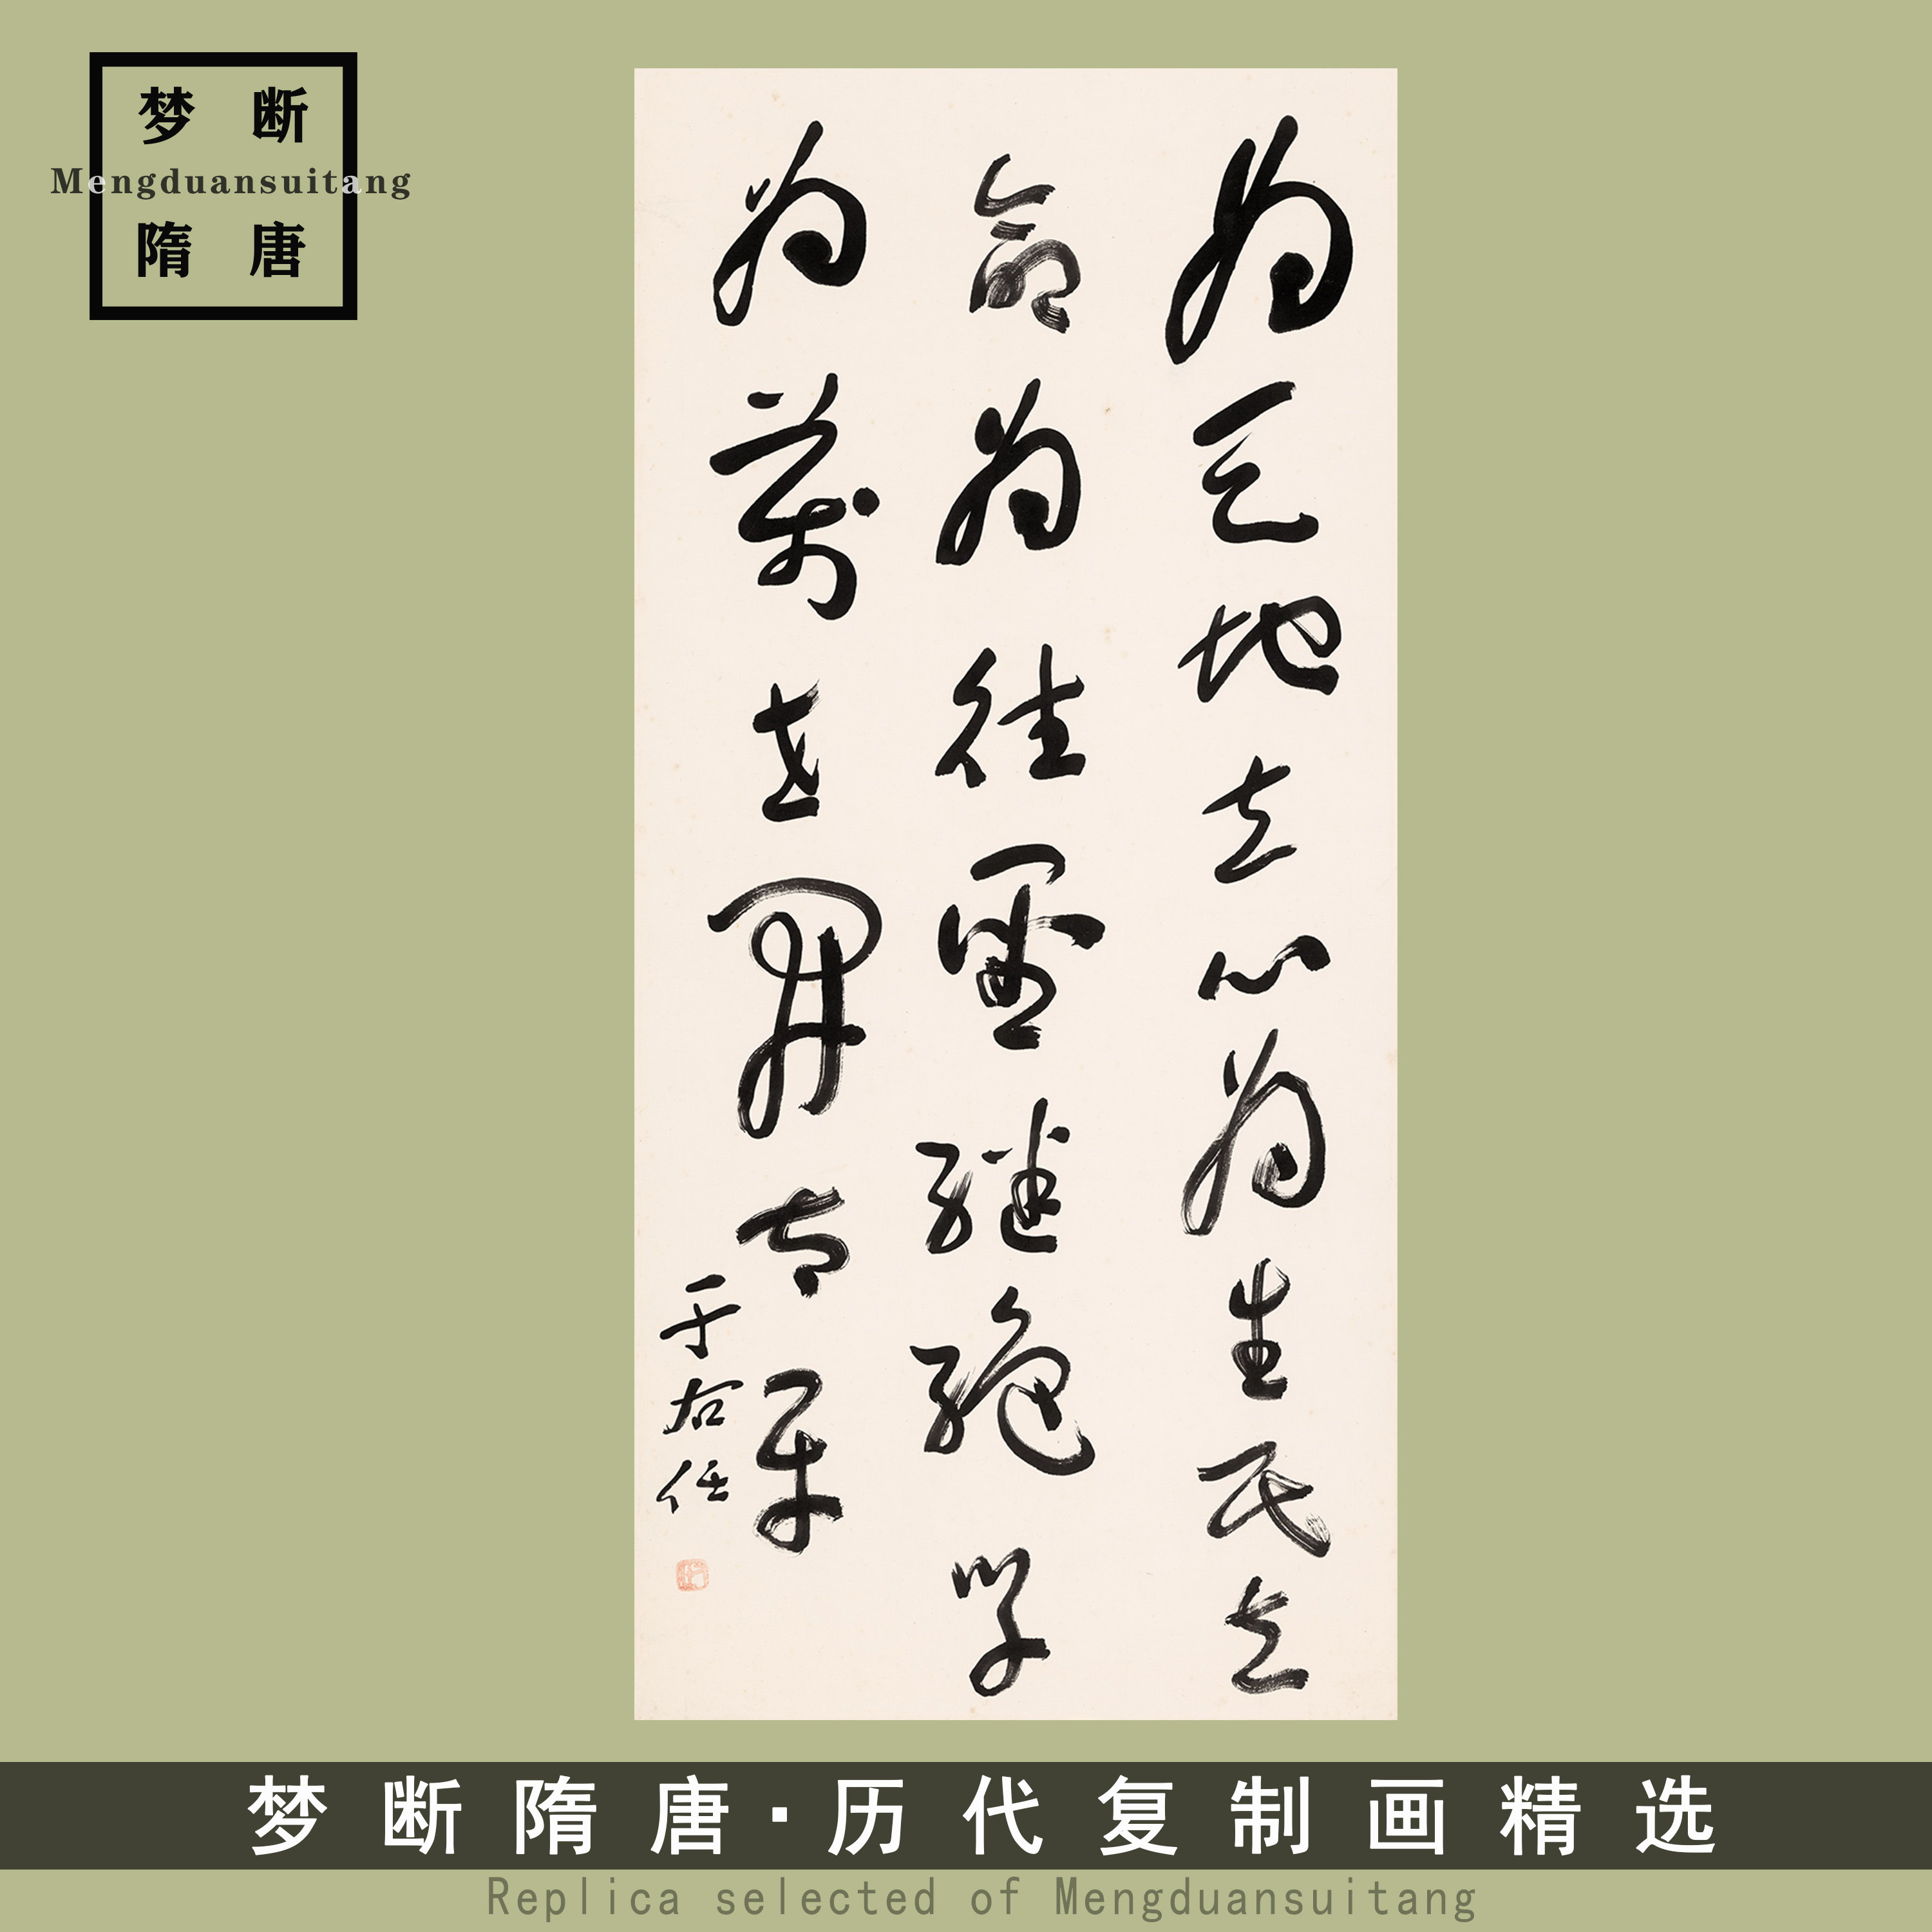 梦断
Mengduansuitang
隋唐
为天地立心为生民立
命为往圣继绝学
为万世开太平
于右任
梦断隋唐·历代复制画精选
Replica selected of Mengduansuitang